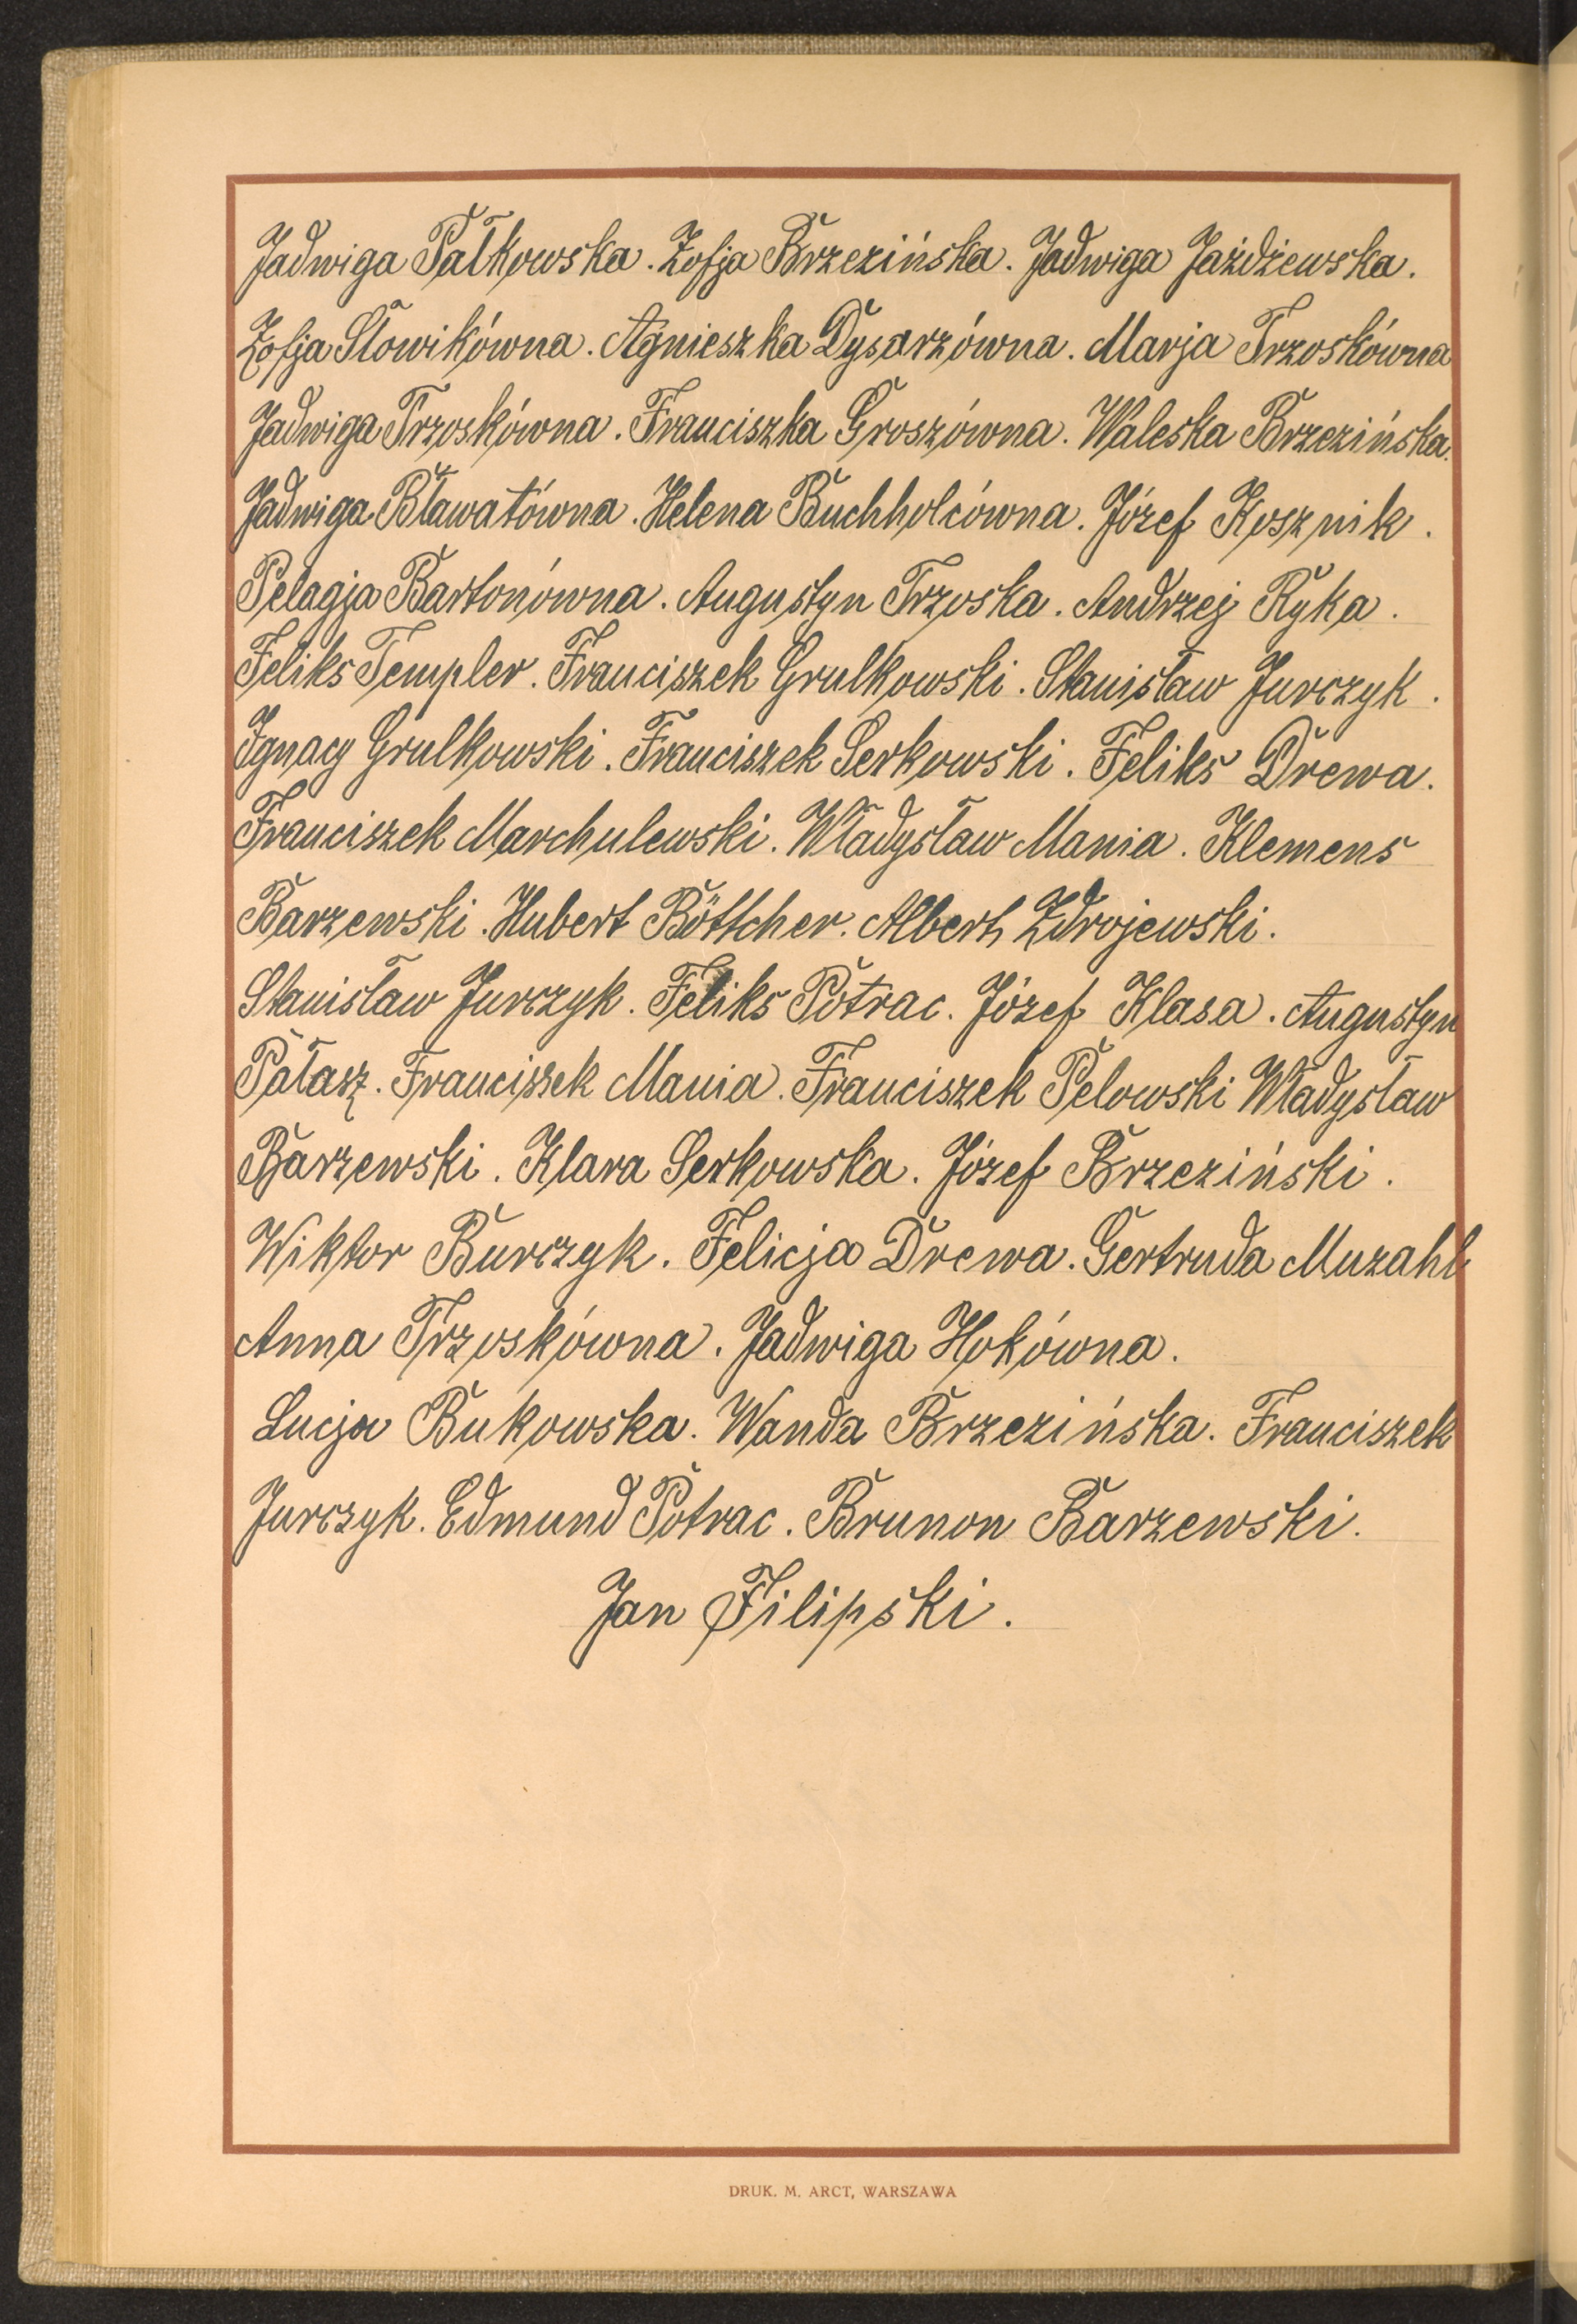 Jadwiga Pałkowska. Zofja Brzezińska. Jadwiga Jażdżewska.
Zofja Słowikówna. Agnieszka Dysarzówna. Marja Trzoskówna
Jadwiga Trzoskówna. Franciszka Groszówna. Waleska Brzezińska.
Jadwiga Bławatówna. Helena Buchholcówna. Józef Kosznik.
Pelagja Bartonówna. Augustyn Trzoska. Andrzej Ryka.
Feliks Templer. Franciszek Grulkowski. Stanisław Jurczyk.
Ignacy Grulkowski. Franciszek Serkowski. Feliks Drewa.
Franciszek Marchulewski. Władysław Mania. Klemens
Barzewski. Hubert Böttcher. Albert Zdrojewski.
Stanisław Jurczyk. Feliks Potrac. Józef Klasa. Augustyn
Pałasz. Franciszek Mania. Franciszek Pelowski Władysław
Barzewski. Klara Serkowska. Józef Brzeziński.
Wiktor Burczyk. Felicja Drewa. Gertruda Muzahl
Anna Trzoskówna. Jadwiga Hokówna.
Lucja Bukowska. Wanda Brzezińska. Franciszek
Jurczyk. Edmund Potrac. Brunon Barzewski.
Jan Filipski.
DRUK. M. ARCT, WARSZAWA